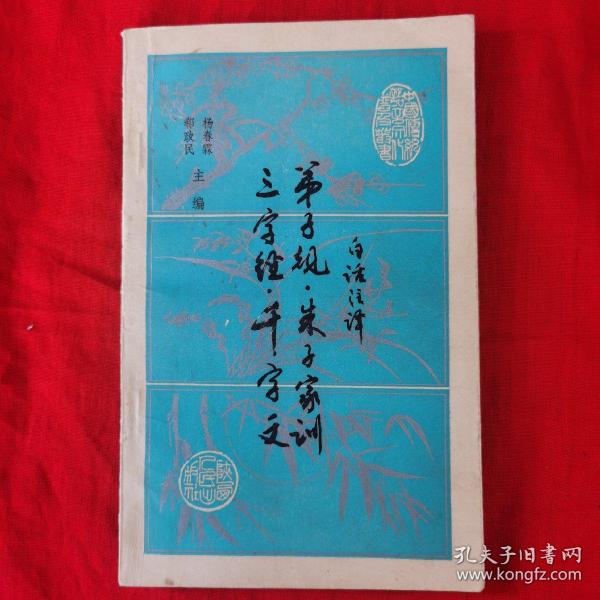 白话注译
弟子规·朱子家训
三字经·千字文
杨春霖
郝政民
主编
陕西人民出版社
孔夫子旧书网
www.kongfz.com